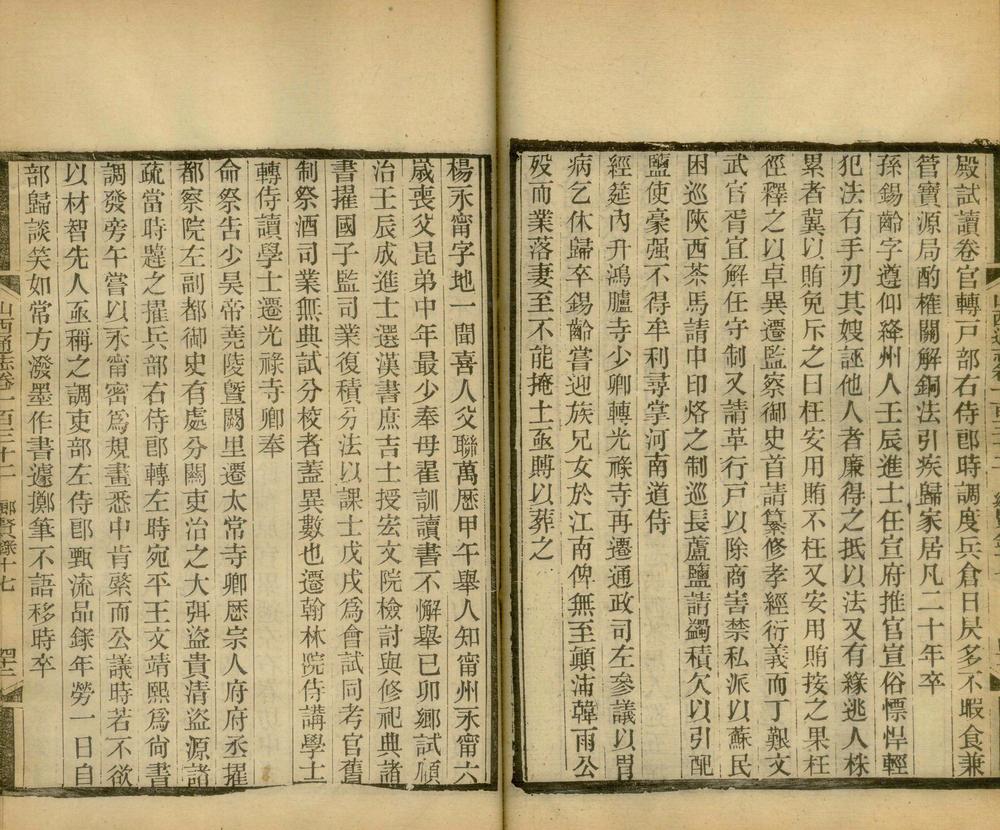 殿試讀卷官轉戸部右侍郎時調度兵倉日昃多不暇食兼
管寶源局酌榷關解銅法引疾歸家居凡二十年卒
孫錫齡字遵仰絳州人壬辰進士任宣府推官宣俗慓悍輕
犯法有手刃其嫂誣他人者廉得之抵以法又有緣逃人株
累者冀以賄免斥之曰枉安用賄不枉又安用賄按之果枉
徑釋之以卓異遷監察御史首請纂修孝經衍義而丁艱文
武官胥宜解任守制又請革行戸以除商害禁私派以蘇民
困巡陝西茶馬請中印烙之制巡長蘆鹽請蠲積欠以引配
鹽使豪强不得牟利尋掌河南道侍
經筵內升鴻臚寺少卿轉光祿寺再遷通政司左參議以胃
病乞休歸卒錫齡嘗迎族兄女於江南俾無至顛沛韓雨公
歿而業落妻至不能掩土亟賻以葬之
楊永甯字地一聞喜人父聯萬歷甲午舉人知甯州永甯六
歲喪父昆弟中年最少奉母翟訓讀書不懈舉已卯鄉試順
治壬辰成進士選漢書庶吉士授宏文院檢討與修祀典諸
書擢國子監司業復積分法以課士戊戌爲會試同考官舊
制祭酒司業無典試分校者蓋異數也遷翰林院侍講學士
轉侍讀學士遷光祿寺卿奉
命祭告少昊帝堯陵曁闕里遷太常寺卿歷宗人府府丞擢
都察院左副都御史有處分關吏治之大弭盜貴清盜源諸
疏當時韙之擢兵部右侍郎轉左時宛平王文靖熙爲尙書
調發旁午嘗以永甯密爲規畫悉中肯綮而公議時若不欲
以材智先人亟稱之調吏部左侍郎甄流品錄年勞一日自
部歸談笑如常方潑墨作書遽擲筆不語移時卒
山西通志卷一百三十二 鄉賢錄十七